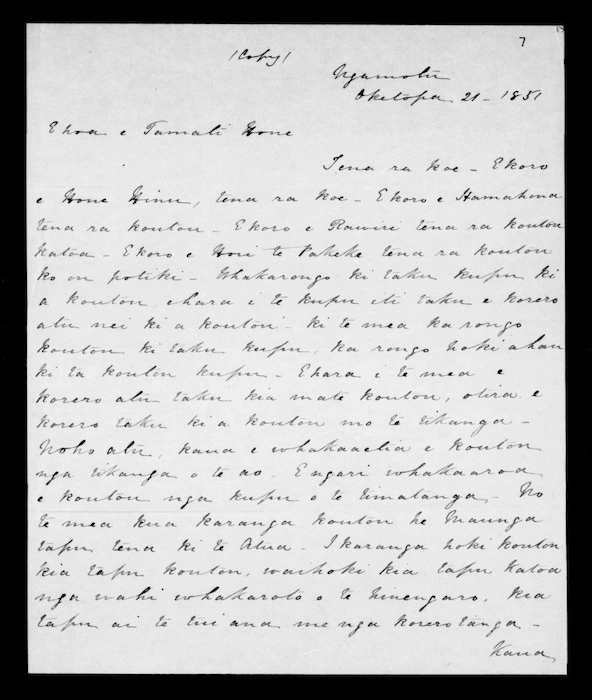 7
(Copy)
Ngamotu
Oketopa 21 - 1851
E hoa e Tamati Hone
Tena ra koe - E koro
e Hone Hinu, tena ra koe - E koro e Hamahona
tena ra koutou - E koro e Rawiri tena ra koutou
katoa - E koro e Hori te Pakeke tena ra koutou
ko ou potiki - Whakarongo ki taku kupu ki
a koutou, ehara i te kupu iti taku e korero
atu nei ki a koutou - ki te mea ka rongo
koutou ki taku kupu, ka rongo hoki ahau
ki ta koutou kupu - Ehara i te mea e
korero atu taku kia mate koutou, otira e
korero taku ki a koutou mo te tikanga -
Noho atu, kaua e whakaaetia e koutou
nga tikanga o te ao - Engari whakaaroa
e koutou nga kupu o te timatanga - No
te mea kua karanga koutou he Maunga
tapu tena ki te Atua - I karanga hoki koutou
kia tapu koutou, waihoki kia tapu katoa
nga wahi whakaroto o te hinengaro, kia
tapu ai te tinana me nga korerotanga -
Kaua